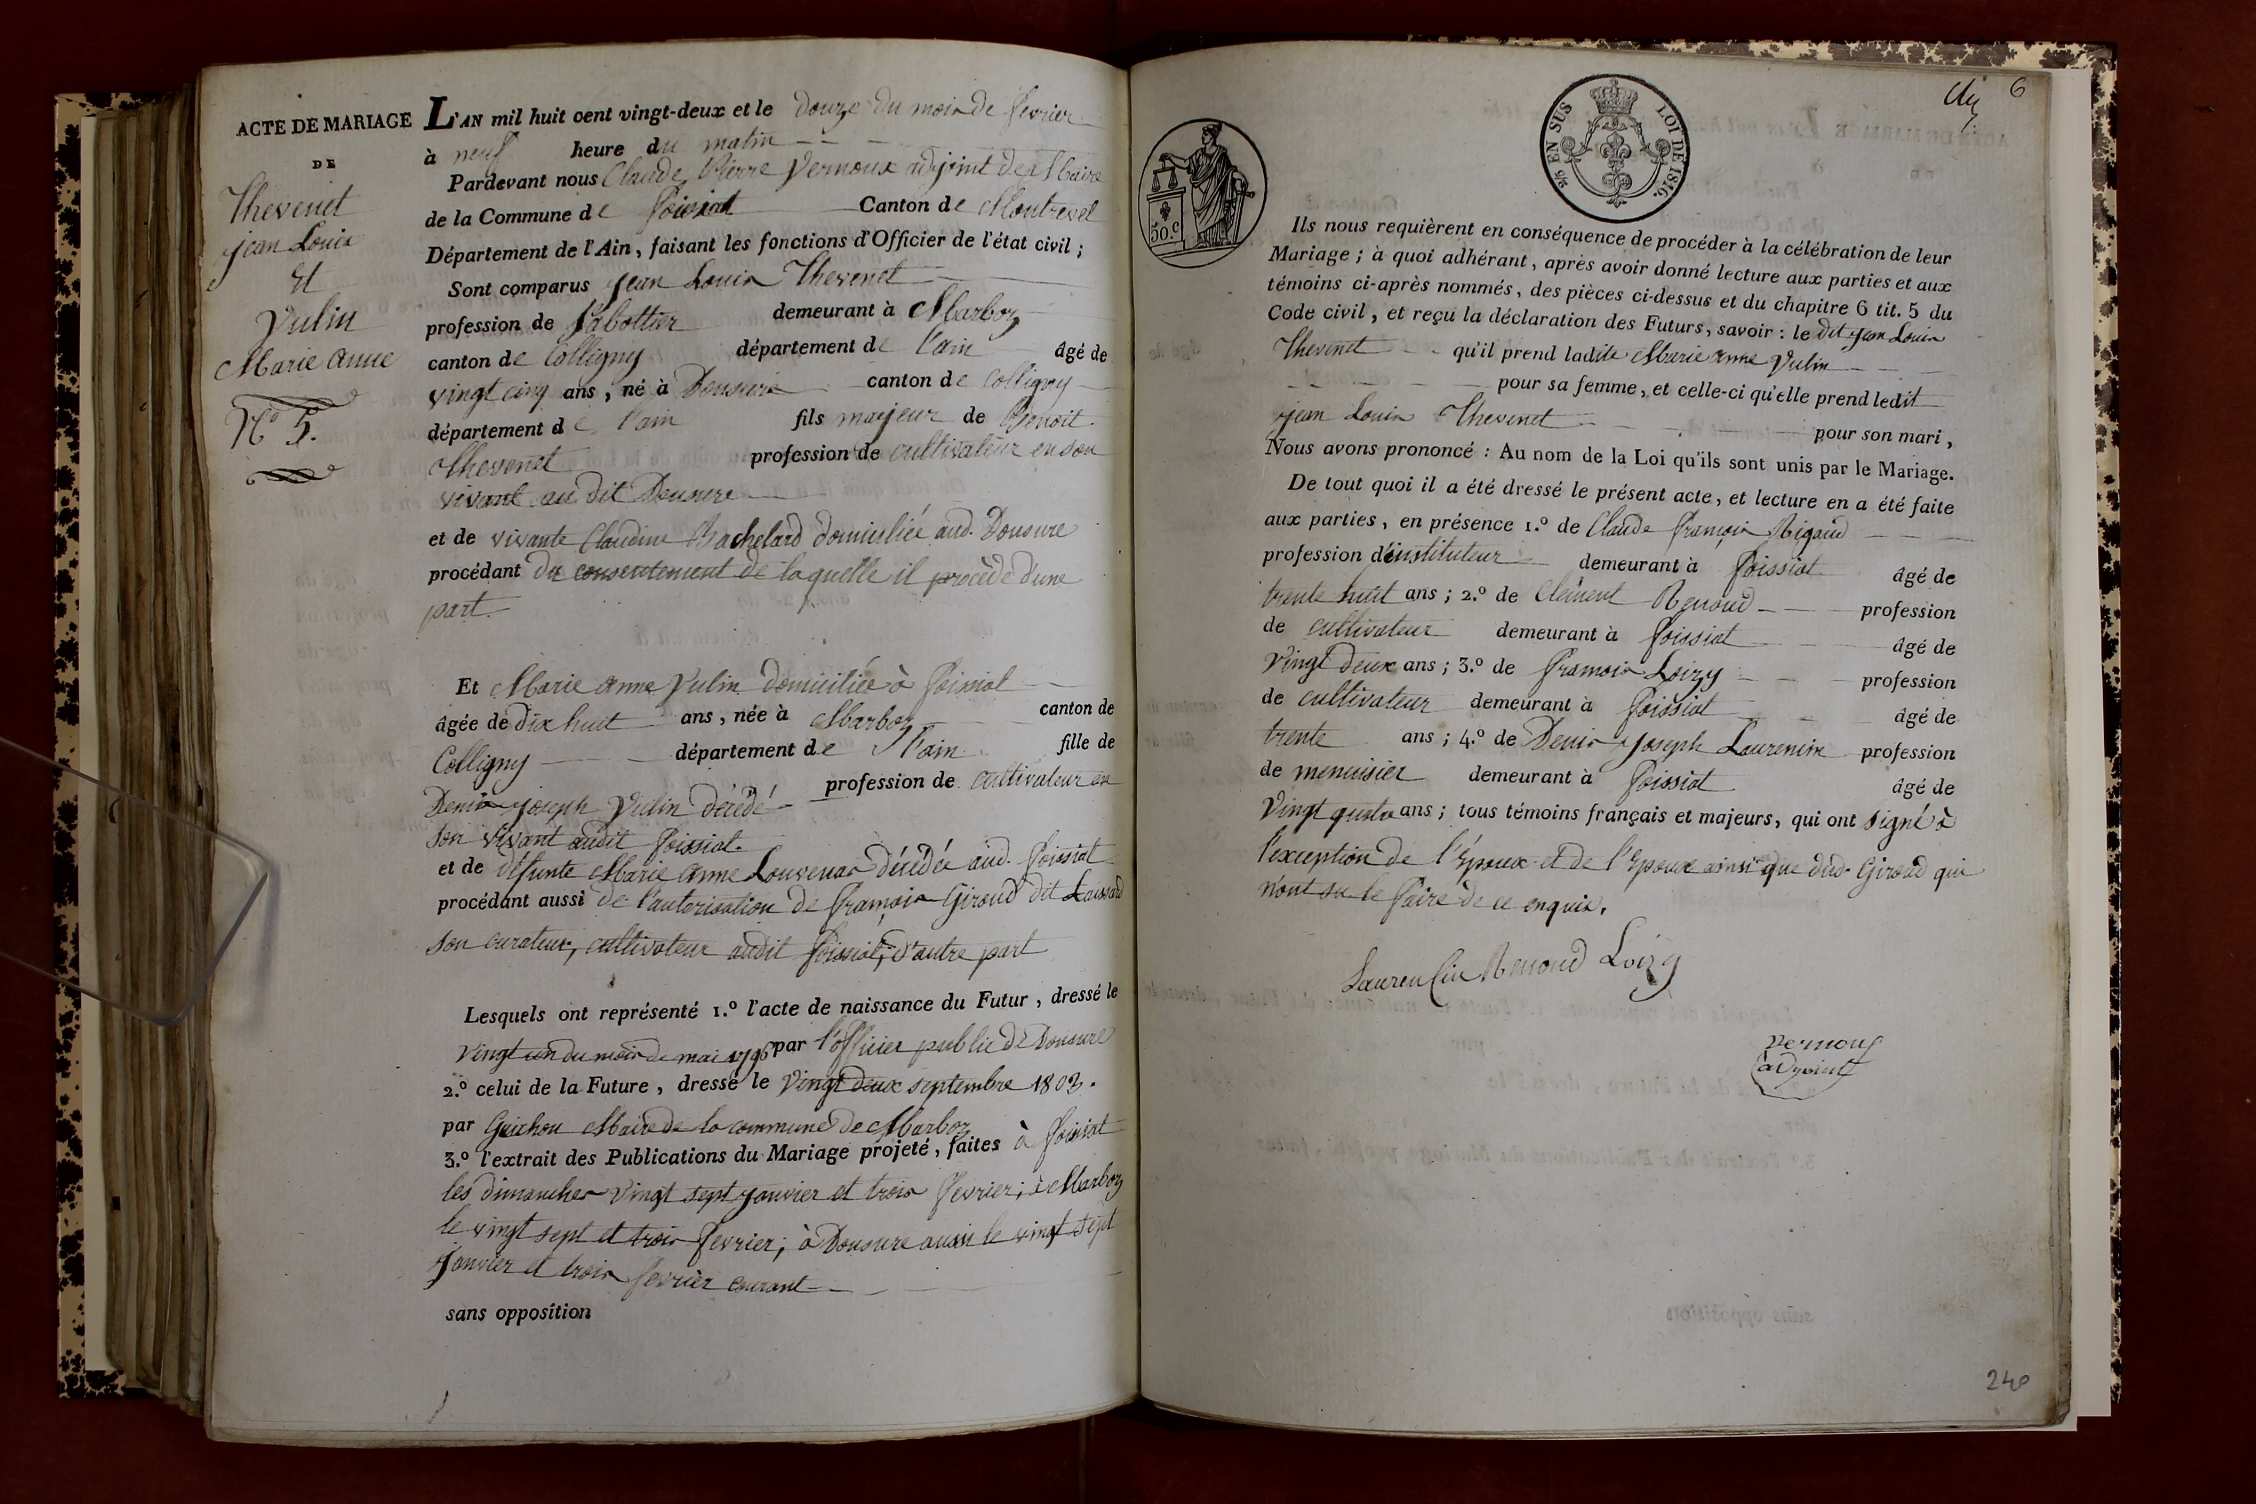 ACTE DE MARIAGE
DE
Thevenet
jean Louis
Et
Vulin
Marie anne
N.o 5.
L'AN mil huit cent vingt-deux et le douze du mois de fevrier
à neuf heure du matin
Pardevant nous Claude Pierre Vernoux adjoint de Maire
de la Commune de foissiat Canton de Montrevel
Département de l'Ain, faisant les fonctions d'Officier de l'état civil;
Sont comparus jean Louis Thevenet
profession de sabottier demeurant à Marboz
canton de Colligny département de l'ain âgé de
vingt cinq ans, né à Domsure canton de Colligny
département de l'ain fils majeur de Benoit
Thevenet profession de cultivateur en son
vivant au dit Domsure
et de vivante Claudine Bachelard domiciliée aud. Domsure
procédant du consentement de laquelle il procède d'une
part
Et Marie anne Vulin domiciliée à foissiat
âgée de dix huit ans, née à Marboz canton de
Colligny département de l'ain fille de
Denis joseph Vulin décédé profession de cultivateur en
son vivant audit foissiat.
et de défunte Marie anne Louvenas décédée aud. foissiat
procédant aussi de l'autorisation de françois Giroud dit
son curateur, cultivateur audit foissiat, d'autre part
Lesquels ont représenté 1.o l'acte de naissance du Futur, dressé le
vingt un du mois de mai 1796 par l'officier public de Domsure
2.o celui de la Future, dressé le vingt deux septembre 1803.
par Guichon Maire de la commune de Marboz
3.o l'extrait des Publications du Mariage projeté, faites à foissiat
les dimanches vingt sept janvier et trois fevrier; à Marboz
le vingt sept et trois fevrier; à Domsure aussi le vingt sept
janvier et trois fevrier courant
sans opposition
6
5/s EN SUS LOI DE 1816.
50.c
Ils nous requièrent en conséquence de procéder à la célébration de leur
Mariage; à quoi adhérant, après avoir donné lecture aux parties et aux
témoins ci-après nommés, des pièces ci-dessus et du chapitre 6 tit. 5 du
Code civil, et reçu la déclaration des Futurs, savoir: le dit jean Louis
Thevenet qu'il prend ladite Marie anne Vulin
pour sa femme, et celle-ci qu'elle prend ledit
jean Louis Thevenet pour son mari,
Nous avons prononcé: Au nom de la Loi qu'ils sont unis par le Mariage.
De tout quoi il a été dressé le présent acte, et lecture en a été faite
aux parties, en présence 1.o de Claude françois Rigaud
profession d'instituteur demeurant à foissiat âgé de
trente huit ans; 2.o de Clément Renoud profession
de cultivateur demeurant à foissiat âgé de
vingt deux ans; 3.o de françois Loizy profession
de cultivateur demeurant à foissiat âgé de
trente ans; 4.o de Denis joseph Laurencin profession
de menuisier demeurant à foissiat âgé de
vingt quatre ans; tous témoins français et majeurs, qui ont signé à
l'exception de l'époux et de l'Epouse ainsi que dud. Giroud qui
n'ont su le faire de ce enquis.
Laurencin Renoud Loizy
Vernoux
adjoint
240